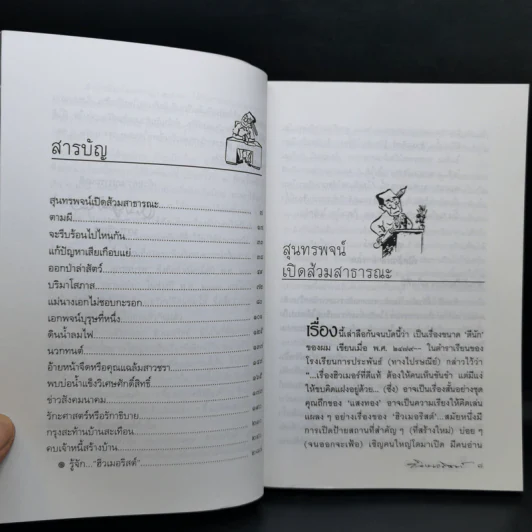 สารบัญ
สุนทรพจน์เปิดส้วมสาธารณะ
ตามผี
จะรีบร้อนไปไหนกัน
แก้ปัญหาเสียเกือบแย่
ออกป่าล่าสัตว์
บริมาโสภาส
แม่นางเอกไม่ชอบกะรอก
เอกพจน์บุรุษที่หนึ่ง
ดินน้ำลมไฟ
นวกทนต์
อ้ายหน้าจืดหรือคุณแฉล้มสาวชรา
พบบ่อน้ำแข็งวิเศษศักดิ์สิทธิ์
ข่าวสังคมนาคม
รักะศาสตร์หรือรักาธิบาย
กรุงสะท้านบ้านสะเทือน
คบเจ้าหนี้สร้างบ้าน
● รู้จัก... "ฮิวเมอริสต์"
สุนทรพจน์
เปิดส้วมสาธารณะ
เรื่องนี้เล่าลือกันจนบัดนี้ว่า เป็นเรื่องขนาด 'คีนัก'
ของผม เขียนเมื่อ พ.ศ. ในตำราเรียนของ
โรงเรียนการประพันธ์ (ทางไปรษณีย์) กล่าวไว้ว่า
"...เรื่องฮิวเมอร์ที่ดีแท้ ต้องให้คนเห็นขันขำ แต่มีแง่
ให้ขบคิดแฝงอยู่ด้วย... (ซึ่ง) อาจเป็นเรื่องสั้นอย่างชุด
คุณถึกของ 'แสงทอง' อาจเป็นความเรียงให้คิดเล่น
แผลง ๆ อย่างเรื่องของ 'ฮิวเมอริสต์'...สมัยหนึ่งมี
การเปิดป้ายสถานที่สำคัญ ๆ (ที่สร้างใหม่) บ่อย ๆ
(จนออกจะเฟ้อ) เชิญคนใหญ่โตมาเปิด มีคนอ่าน